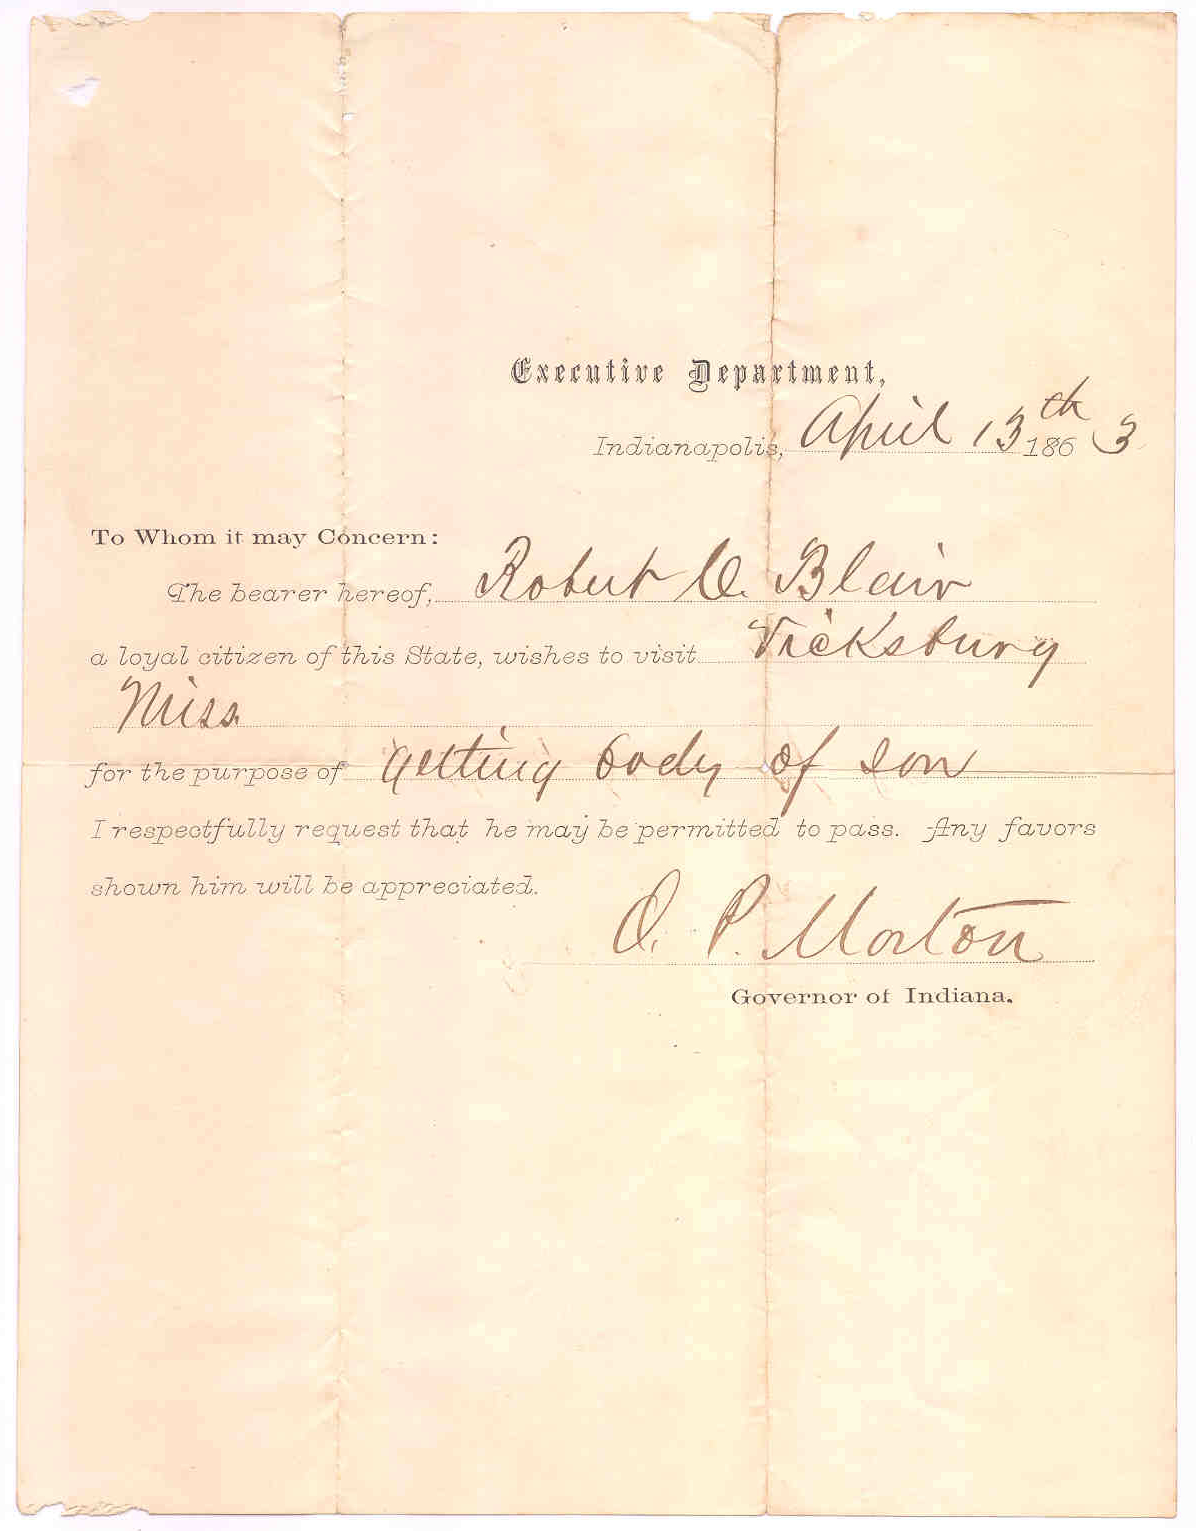 Executive Department,
Indianapolis, April 13th 1863
To Whom it may Concern:
The bearer hereof, Robert O. Blair
a loyal citizen of this State, wishes to visit Vicksburg
Miss.
for the purpose of getting body of son
I respectfully request that he may be permitted to pass. Any favors
shown him will be appreciated.
O. P. Morton
Governor of Indiana.